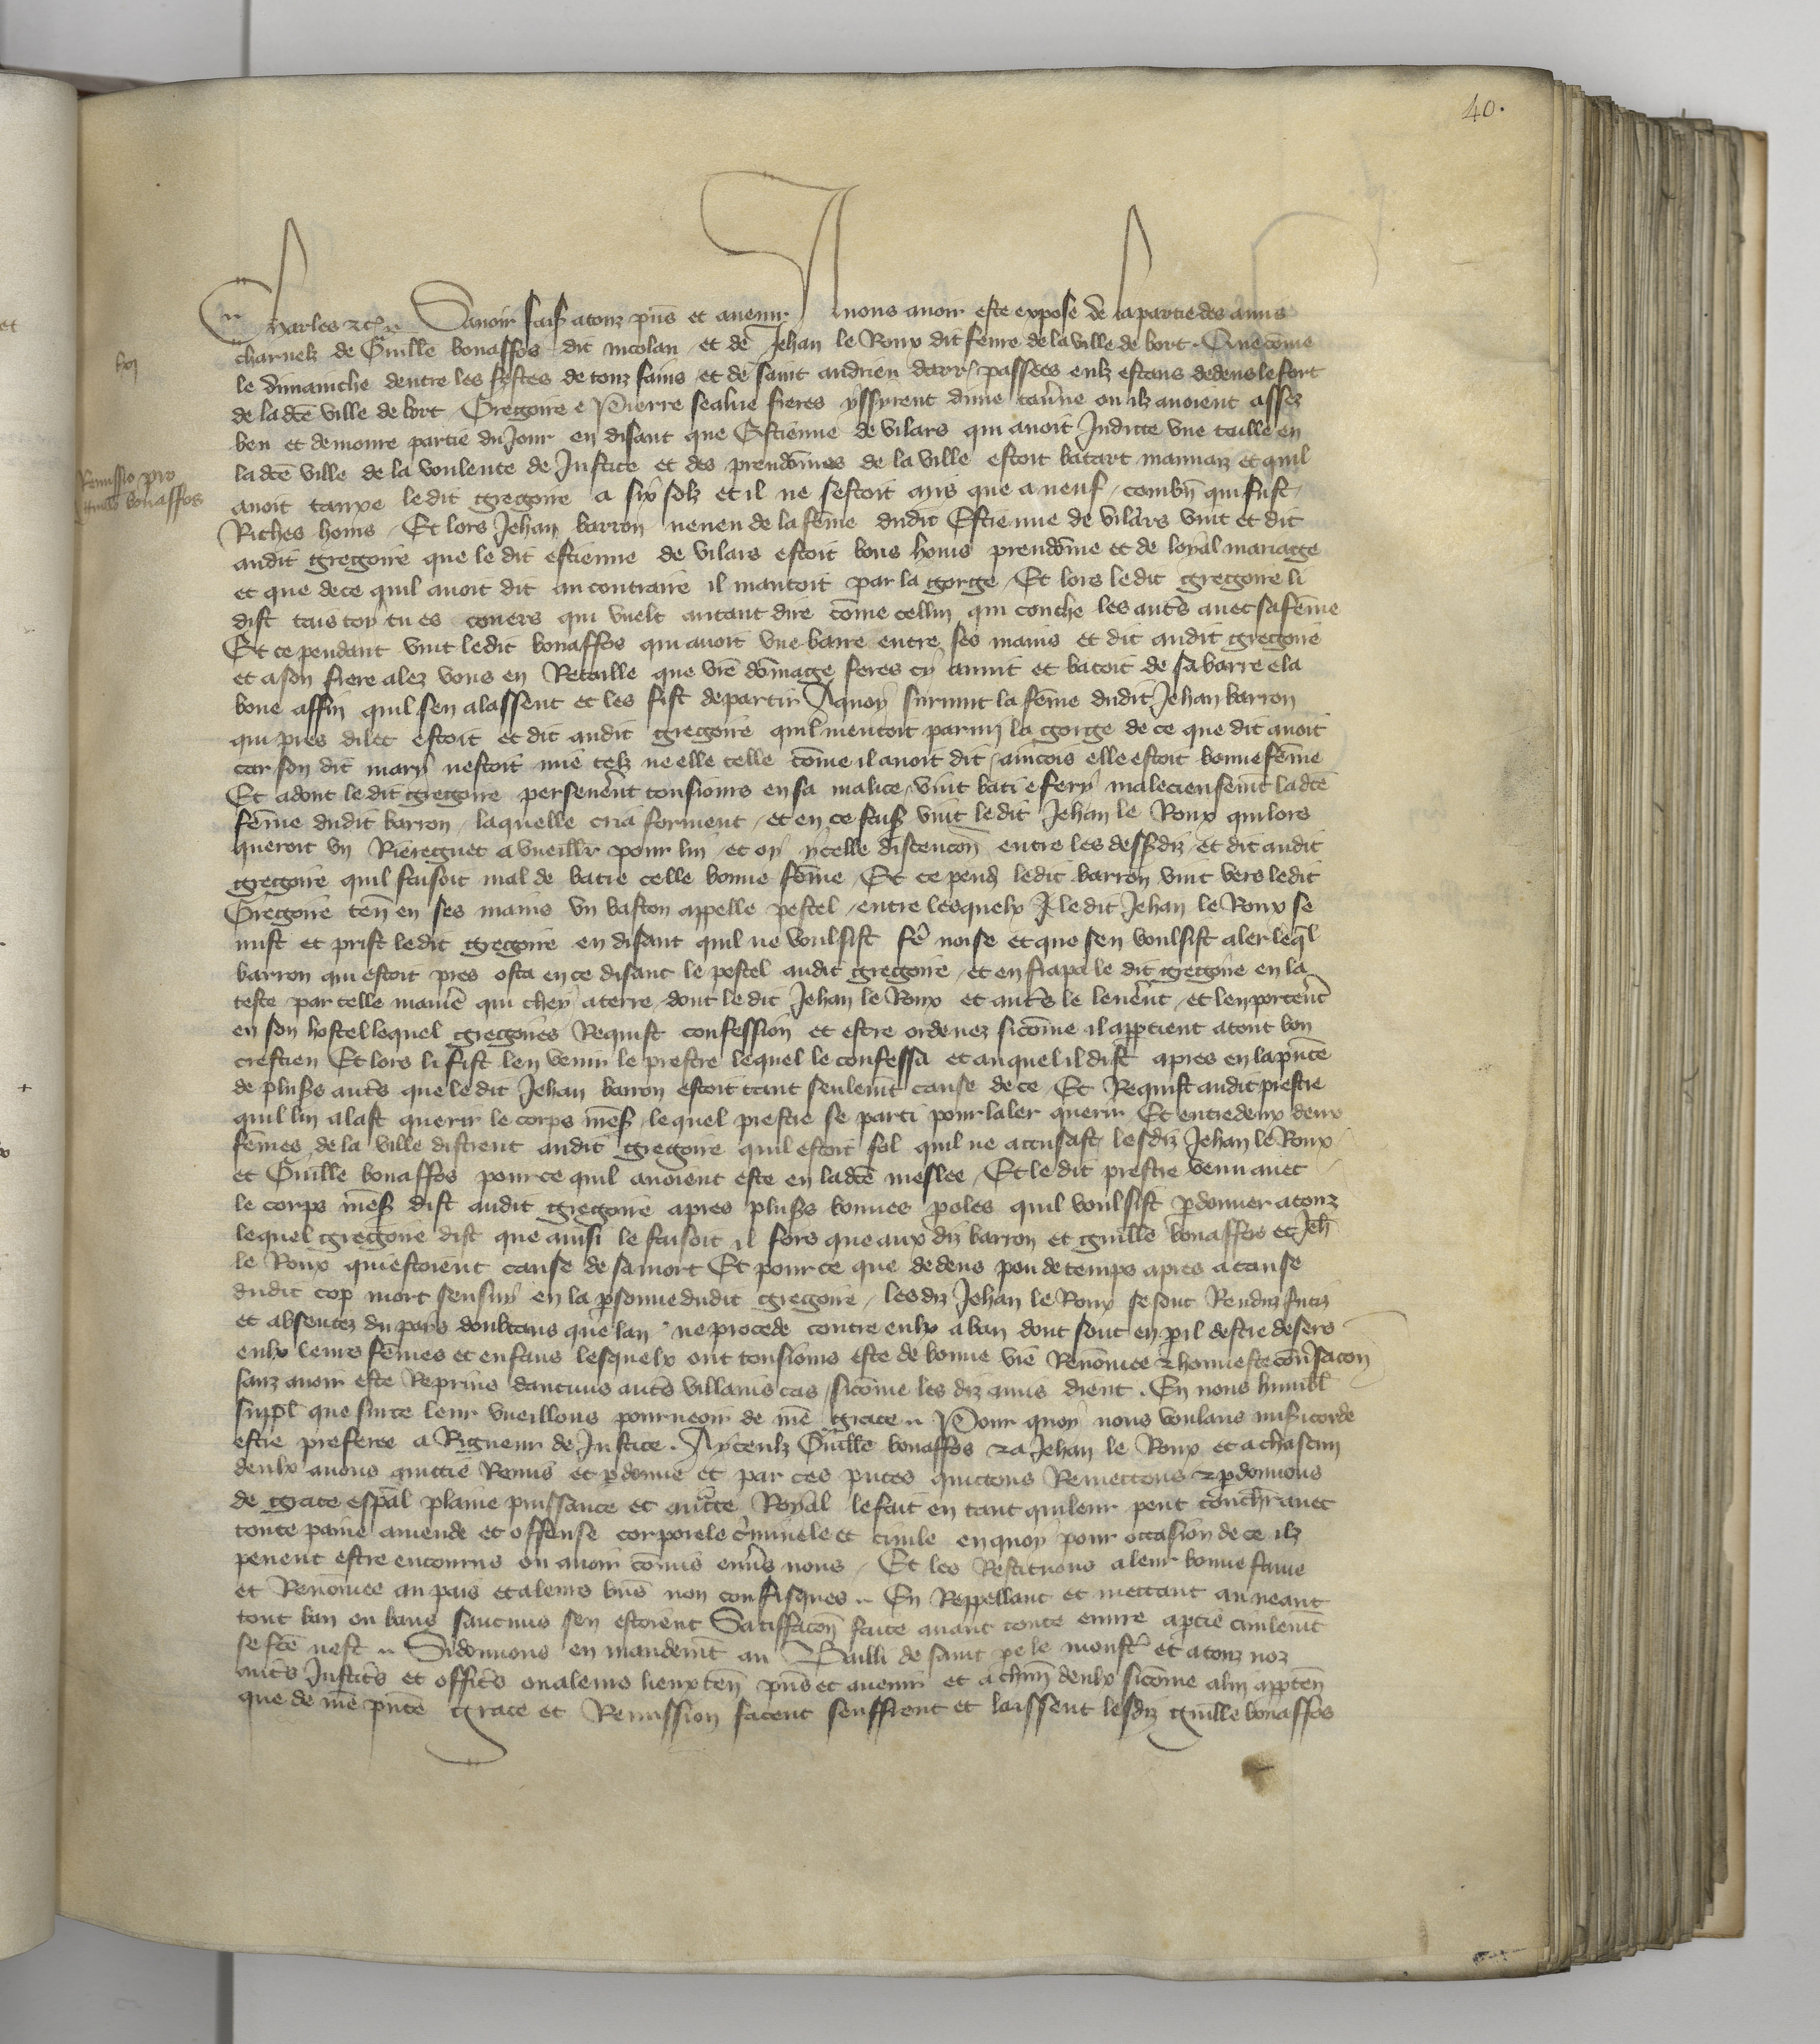 40.
Charles etc. Savoir fais a touz pñs et avenir A nous avoir este expose de la partie des amis
charnelz de Guille bonaffos dit nicolau et de Jehan le Roux dit feure de la ville de bort. Que cõme
le dimainche dentre les festes de touz sains et de saint andrieu darr passees eulz estans dedens le fort
de ladce ville de bort Gregoire e Pierre sealue freres yssyrent dune tav̾ne ou ilz avoient assez
beu et demoure partie du Jour en disant que Estienne de vilars qui avoit Indicte vne taille en
ladce ville de la voulente de Justice et des preudõmes de la ville estoit batart mauuaiz et quil
avoit tauxe ledit gregoire a six solz et il ne sestoit mis que a neuf combñ qui fust
Riches homs Et lors Jehan barron neueu de la fẽme dudit Estienne de vilars vint et dit
audit gregoire que le dit estienne de vilars estoit bons homs preudõme et de loyal mariage
et que de ce quil avoit dit au contraire il mantoit par la gorge Et lors le dit gregoire li
dist tais toy tu es couers qui vuelt autant dire cõme cellui qui couche les aut̾s avec sa fẽme
Et ce pendant vint ledit bonaffos qui avoit vne barre entre ses mains et dit audit gregoire
et a son frere alez vous en Retaille que vr̃e dõmage feres cy anuit et batoit de sa barre e la
boue affin quil sen alassent et les fist departir Aquoy suruint la fẽme dudit Jehan barron
qui pres dilec estoit et dit audit gregoire quil mentoit parmi la gorge de ce que dit avoit
car son dit mary nestoit mie telz ne elle telle cõme il avoit dit aincois elle estoit bonne fẽme
Et adont le dit gregoire perseuer̾nt tousiours en sa malice vint bati e fery malicieusemt̃ ladce
fẽme dudit barron laquelle cria forment et en ce fais̃ vint le dit Jehan le Roux qui lors
queroit vn Riereguet a vueillr pour lui et oy ycelle discencõn entre les dess̃diz et dit audit
gregoire quil faisoit mal de batre celle bonne fẽme Et ce pend̃ ledit barron vint vers ledit
Gregoire teñ en ses mains vn baston appelle pestel entre lesquelx le dit Jehan le Roux se
mist et prist ledit gregoire en disant quil ne voulsist fẽ noise et que sen voulsist aler leq̃l
barron qui estoit pres osta en ce disant le pestel audit gregoire et en frapa le dit gregoire en la
teste par telle manir̃e qui chey a terre dont le dit Jehan le Roux et aut̾s le leuer̾nt et lenporter̾nt
en son hostel lequel gregoires Requist confession et estre ordenez sicõme il apptient a tout bon
crestien Et lors li fist len venir le prestre lequel le confessa et auquel il dist apres en la p̃nce
de pluss̃ aut̾s que le dit Jehan barron estoit tant seulemt̃ cause de ce Et Requist audit prestre
quil lui alast querir le corps nrẽs lequel prestre se parti pour laler querir Et entredeux deux
fẽmes de la ville distrent audit gregoire quil estoit fol quil ne accusast lesdiz Jehan le Roux
et Guille bonaffos pour ce quil avoient este en ladce meslee Et le dit prestre venu avec
le corps nrẽs dist audit gregoire apres pluss̃ bonnes poles quil voulsist pdonner a touz
lequel gregoire dist que ainsi le faisoit il fors que aux diz barron et guille bonaffos et Jeh̃
le Roux qui estoient cause de sa mort Et pour ce que dedens pou de temps apres a cause
dudit cop mort sensuy en la psonne dudit gregoire les diz Jehan le Roux se sont Renduz futiz
et absentez du pais doubtans que lan ne procede contre eulx a ban dont sont en pil destre desers
eulx leurs fẽmes et enfans lesquelx ont tousiours este de bonne vie Renõmee et honneste cõu̾sacon
sanz avoir este Reprins daucuns aut̾s villains cas sicõme les diz amis dient. En nous humbl̃
suppl̃ que sur ce leur vueillons pourueoir de nr̃e grace Pour quoy nous voulans mis̃icorde
estre preferee a Rigueur de Justice. A yceulz Guille bonaffos et a Jehan le Roux et a chascun
deulx avons quictie Remis et pdonne et par ces p̃ntes quictons Remettons et pdonnons
de grace esp̃al plaine puissance et auct̃e Royal le fait en tant quil leur peut touch̃r avec
toute paine amende et offense corporele c̾minele et ciuile en quoy pour occasion de ce ilz
peuent estre encourus ou avoir cõmis enu̾s nous Et les Restituons a leur bonne fame
et Renõmee au pais et a leurs bñs non confisques En Reppellant et mettant au neant
tout ban ou bans saucuns sen estoient Satiffacõn faite avant toute euure a partie ciuilemt̃
se fcẽ nest Si donnons en mandemt̃ au Bailli de saint pe le moust̾ et a touz noz
aut̾s Justic̾s et offic̾s ou a leurs lieuxteñ p̃ns et avenir et a ch̃un deulx sicõme a lui appteñ
que de nr̃e p̃nte grace et Remission facent seuffrent et laissent lesdiz guille bonaffos
Remissio pro
Guillo bonaffos